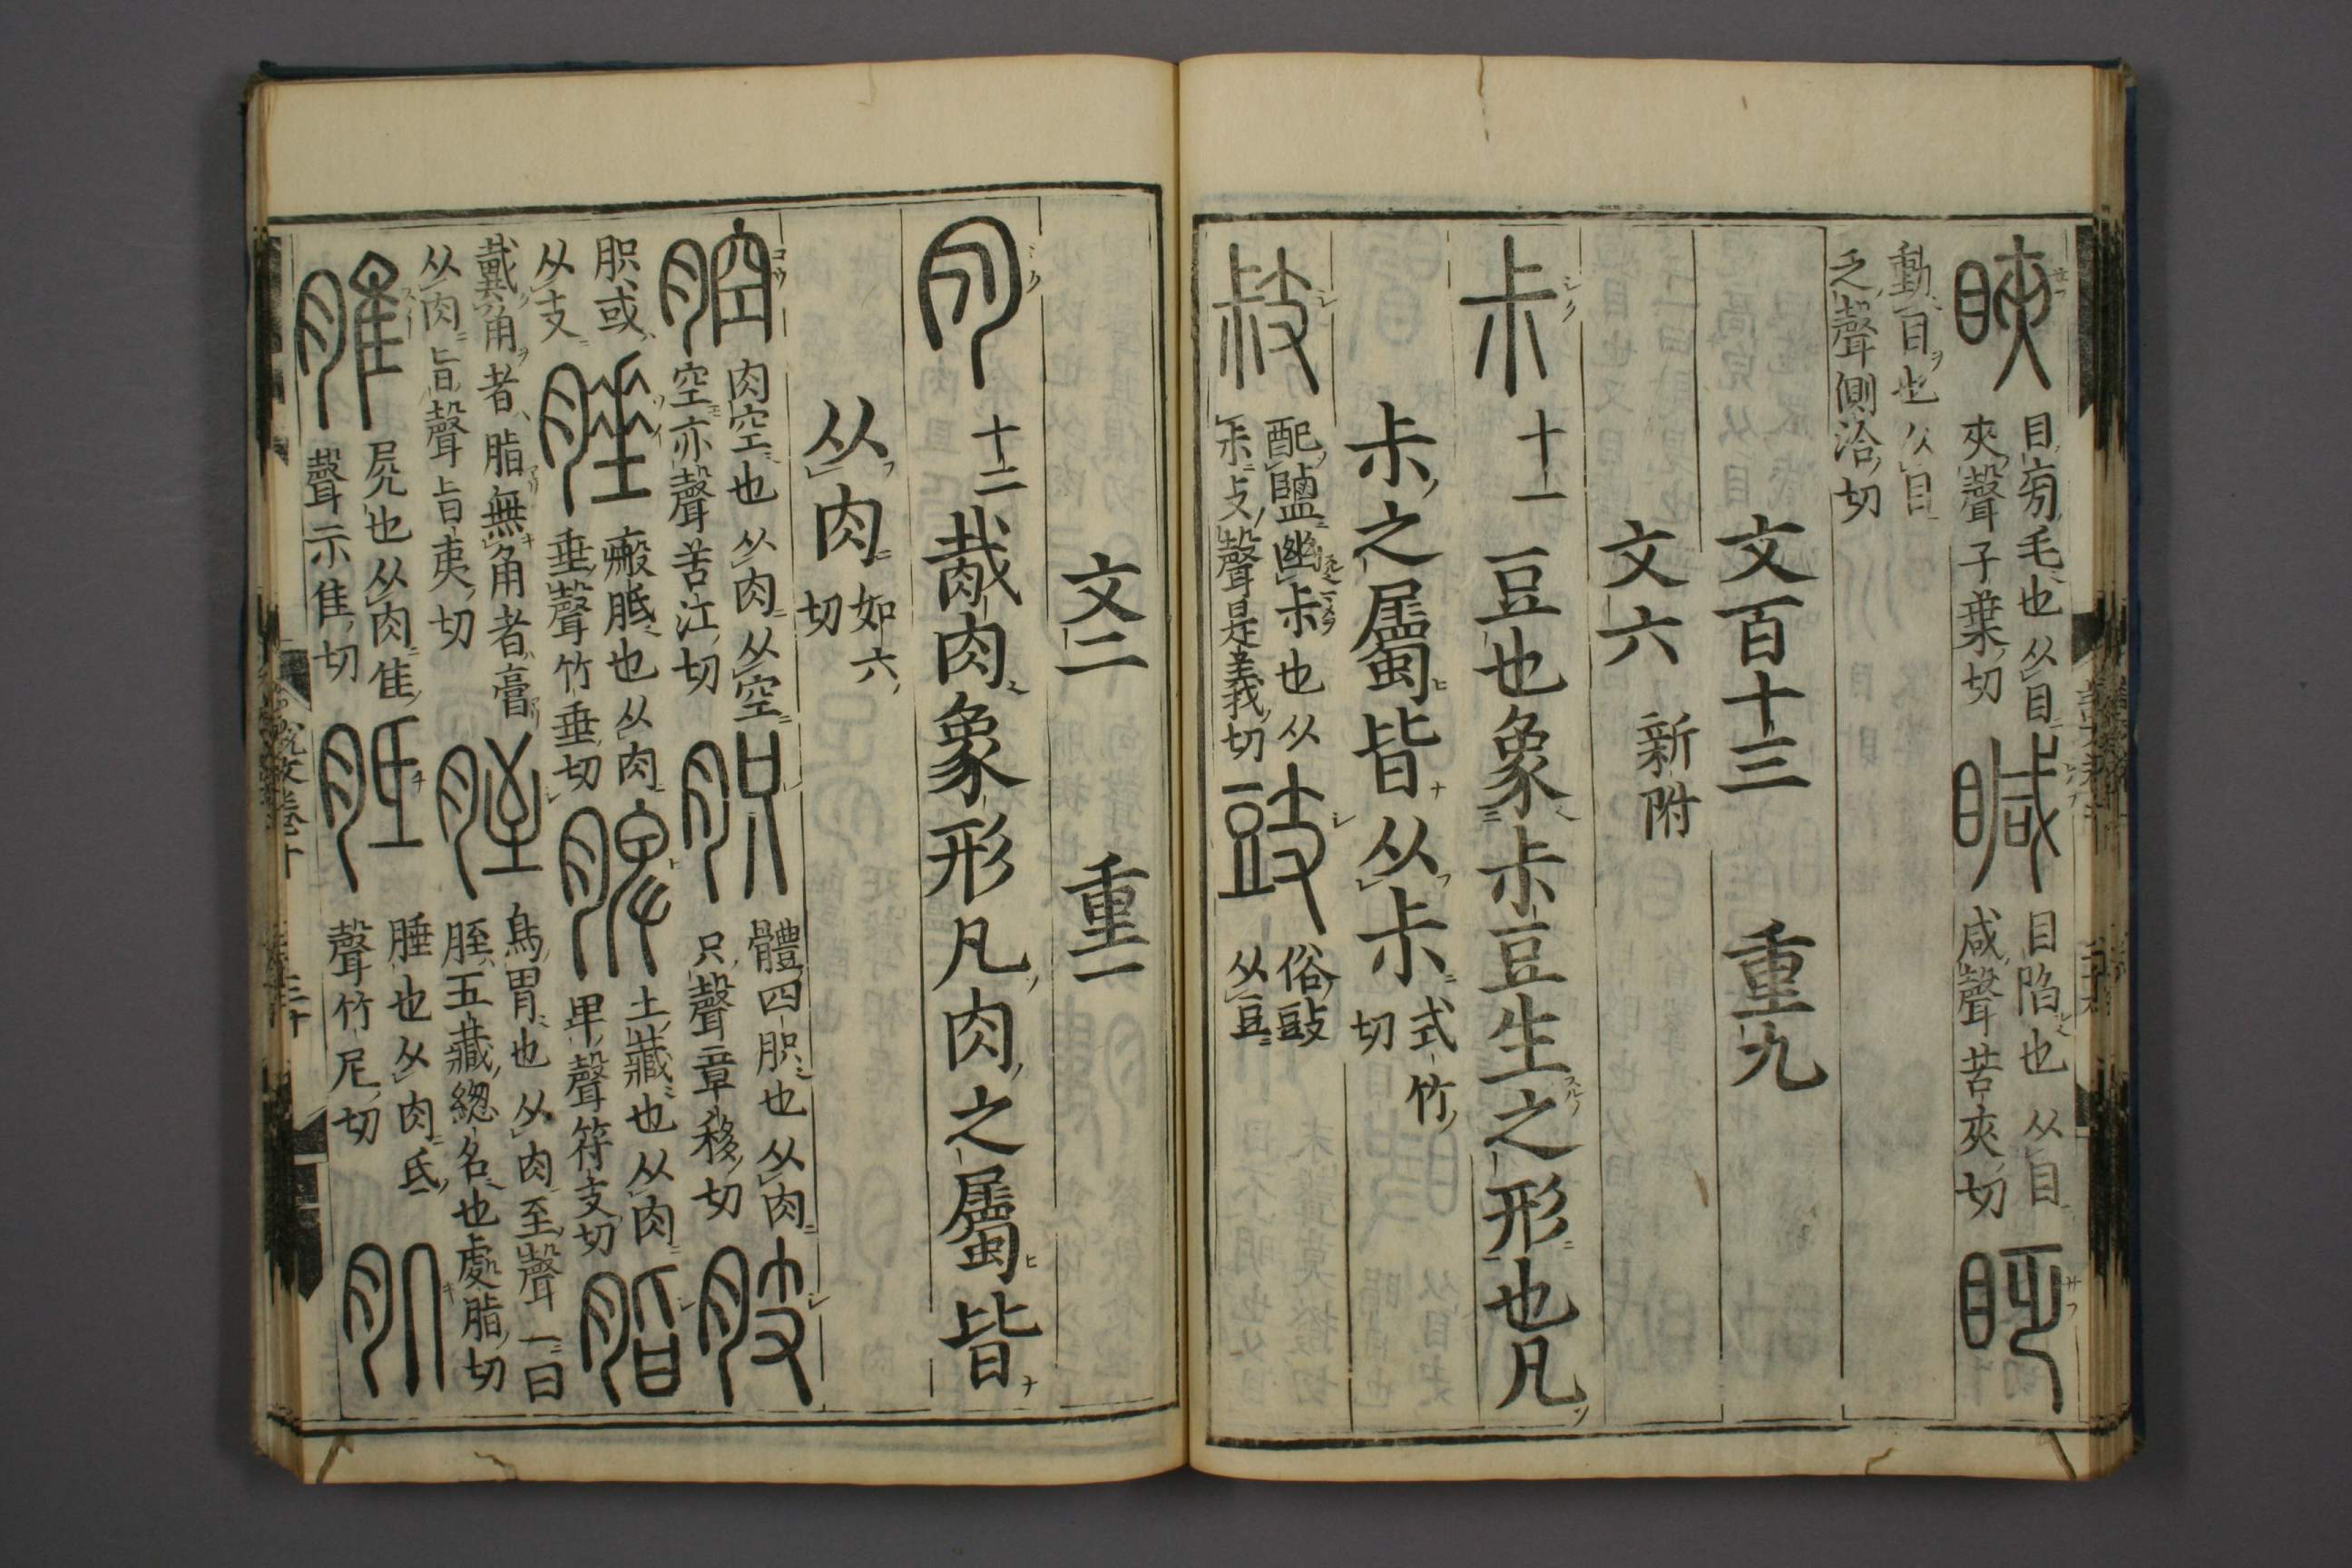 䀹目旁毛也从目夾聲子葉切䁍目陷也从目咸聲苦夾切眨
動目也从目乏聲側洽切
文百十三　重九
文六　新附
尗十一豆也象尗豆生之形也凡
尗之屬皆从尗式竹切
敊配鹽幽尗也从尗攴聲是義切豉俗敊从豆
文二　重一
肉十二胾肉象形凡肉之屬皆
从肉如六切
腔肉空也从肉从空空亦聲苦江切胑體四胑也从肉只聲章移切肢
胑或从支腄瘢胝也从肉垂聲竹垂切脾土藏也从肉卑聲符支切脂
戴角者脂無角者膏从肉旨聲旨夷切胵鳥胃也从肉至聲一曰胵五藏緫名也處脂切
脽尻也从肉隹聲示隹切胝腄也从肉氐聲竹尼切肌
說文卷十　三十